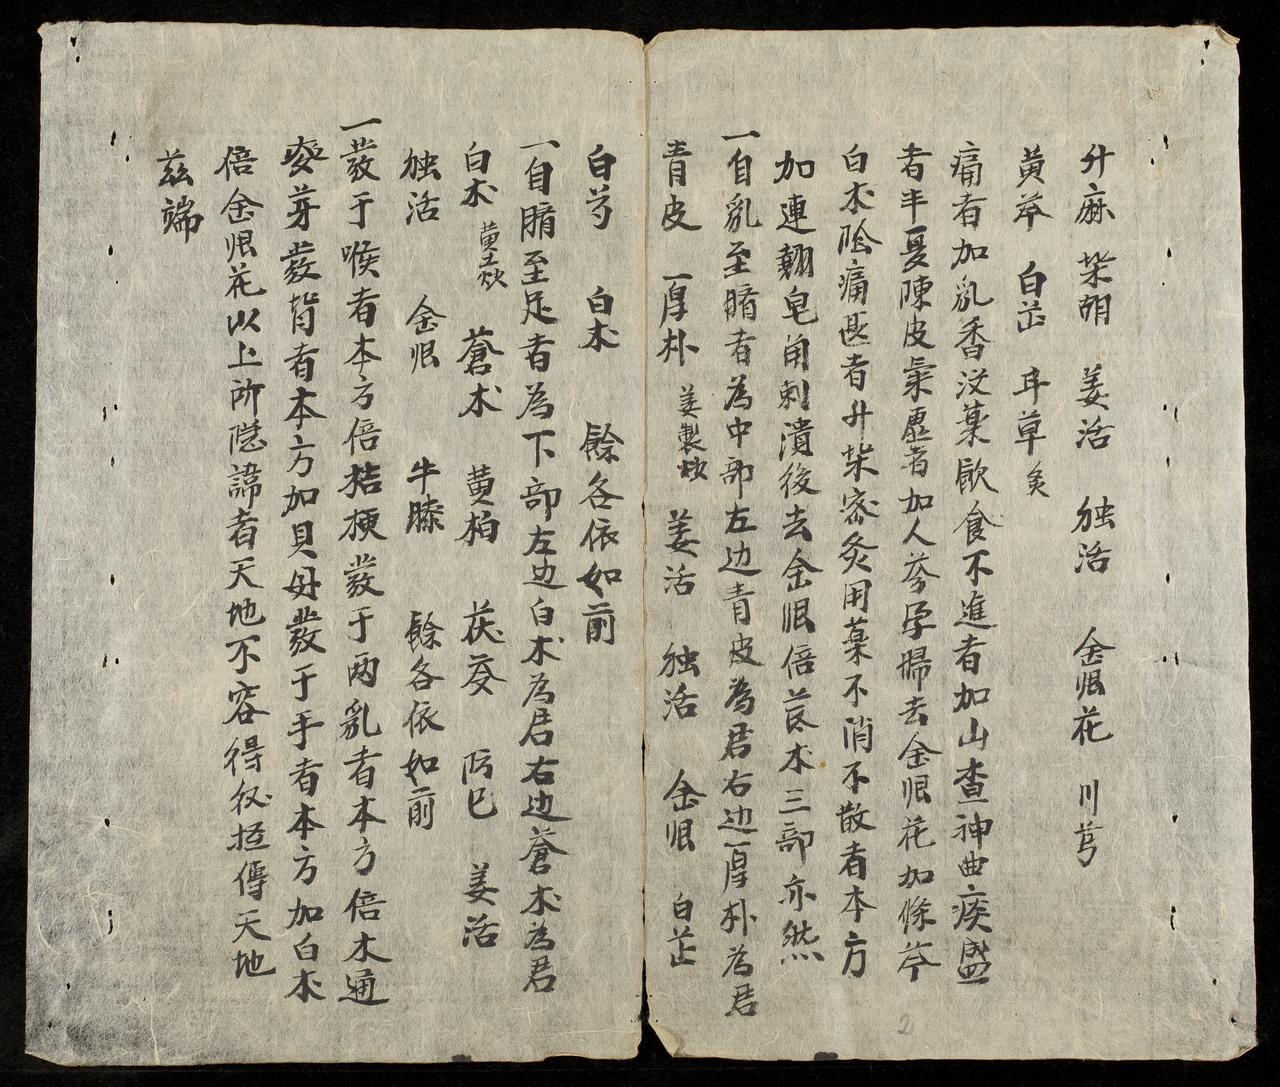 升麻 柴胡 姜活 独活 金艮花 川芎
黄芩 白芷 耳草 炙
痛者加乳香没薬歐食不進者加山査神曲痰盛
者半夏陳皮氣虚者加人參孕婦去金艮花加條芩
白术陰痛甚者升柴密灸用薬不消不散者本方
加連翹皂角刺潰後去金艮倍芪术三部亦然
一自乳至臍者為中部左边青皮為君右边厚朴為君
青皮 厚朴 姜製炒 姜活 独活 金艮 白芷
白芍 白术 餘各依如前
一自臍至足者為下部左边白术為君右边蒼术為君
白术 黄土炒 蒼术 黄柏 茯苓 防已 姜活
独活 金艮 牛膝 餘各依如前
一發于喉者本方倍桔梗發于两乳者本方倍木通
麥芽發背者本方加貝母發于手者本方加白术
倍金艮花以上所隠諱者天地不容得 傳天地
茲端
2